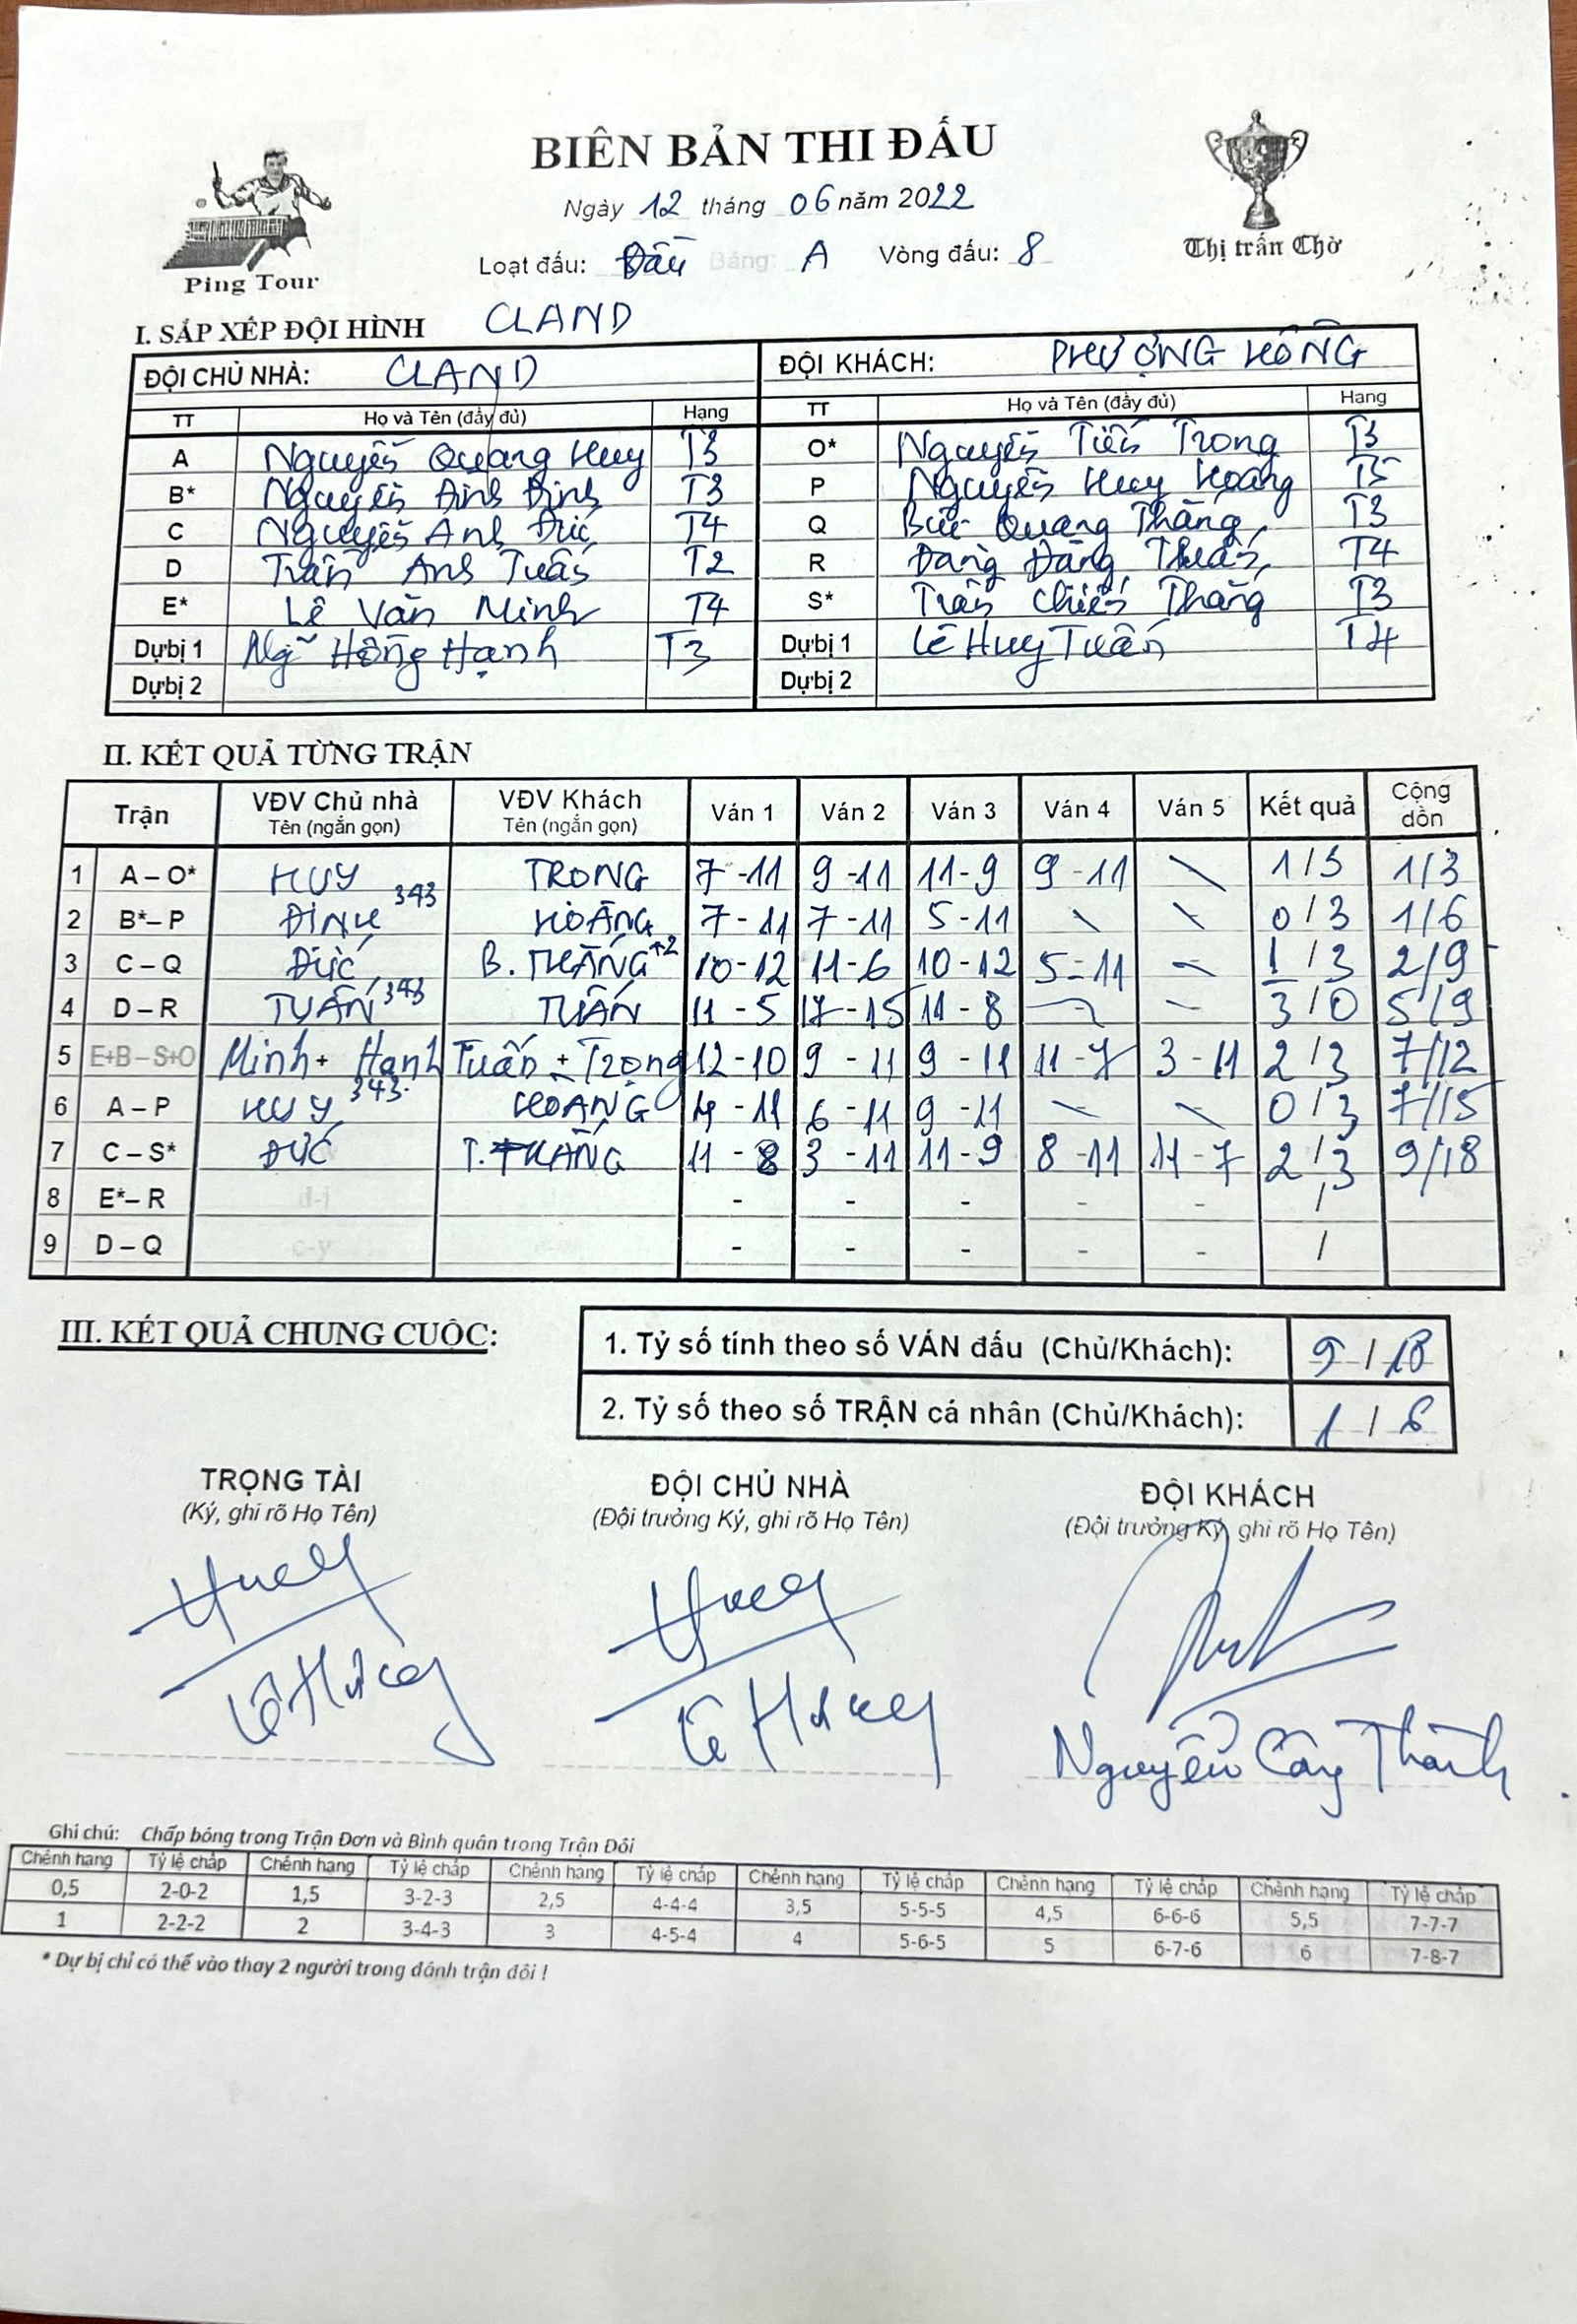 BIÊN BẢN THI ĐẤU
Ngày 12 tháng 06 năm 2022
Loạt đấu: Đấu Bảng: A Vòng đấu: 8
Ping Tour
Thị trấn Chờ
I. SẮP XẾP ĐỘI HÌNH CLAND
ĐỘI CHỦ NHÀ: CLAND ĐỘI KHÁCH: PHƯỢNG HỒNG
TT Họ và Tên (đầy đủ) Hạng TT Họ và Tên (đầy đủ) Hạng
A Nguyễn Quang Huy T3 O* Nguyễn Tiến Trọng T3
B* Nguyễn Đình Định T3 P Nguyễn Huy Hoàng T5
C Nguyễn Anh Đức T4 Q Bùi Quang Thắng T3
D Trần Anh Tuấn T2 R Đặng Đăng Thuấn T4
E* Lê Văn Minh T4 S* Trần Chiến Thắng T3
Dự bị 1 Ng~ Hồng Hạnh T3 Dự bị 1 Lê Huy Tuấn T4
Dự bị 2 Dự bị 2
II. KẾT QUẢ TỪNG TRẬN
Trận VĐV Chủ nhà Tên (ngắn gọn) VĐV Khách Tên (ngắn gọn) Ván 1 Ván 2 Ván 3 Ván 4 Ván 5 Kết quả Cộng dồn
1 A – O* HUY TRỌNG 7 - 11 9 - 11 11 - 9 9 - 11 \ 1 / 3 1/3
2 B* – P ĐỊNH 343 HOÀNG 7 - 11 7 - 11 5 - 11 \ \ 0 / 3 1/6
3 C – Q ĐỨC B. THẮNG +2 10 - 12 11 - 6 10 - 12 5 - 11 - 1 / 3 2/9
4 D – R TUẤN 343 TUẤN 11 - 5 17 - 15 11 - 8 - - 3 / 0 5/9
5 E+B – S+O Minh + Hạnh Tuấn + Trọng 12 - 10 9 - 11 9 - 11 11 - 7 3 - 11 2 / 3 7/12
6 A – P HUY 343 HOÀNG 4 - 11 6 - 11 9 - 11 \ \ 0 / 3 7/15
7 C – S* ĐỨC T. THẮNG 11 - 8 3 - 11 11 - 9 8 - 11 11 - 7 2 / 3 9/18
8 E* – R - - - - - /
9 D – Q - - - - - /
III. KẾT QUẢ CHUNG CUỘC:
1. Tỷ số tính theo số VÁN đấu (Chủ/Khách): 9 / 18
2. Tỷ số theo số TRẬN cá nhân (Chủ/Khách): 1 / 6
TRỌNG TÀI ĐỘI CHỦ NHÀ ĐỘI KHÁCH
(Ký, ghi rõ Họ Tên) (Đội trưởng Ký, ghi rõ Họ Tên) (Đội trưởng Ký, ghi rõ Họ Tên)
Nguyễn Công Thành
Ghi chú: Chấp bóng trong Trận Đơn và Bình quân trong Trận Đôi
Chênh hạng Tỷ lệ chấp Chênh hạng Tỷ lệ chấp Chênh hạng Tỷ lệ chấp Chênh hạng Tỷ lệ chấp Chênh hạng Tỷ lệ chấp Chênh hạng Tỷ lệ chấp
0,5 2-0-2 1,5 3-2-3 2,5 4-4-4 3,5 5-5-5 4,5 6-6-6 5,5 7-7-7
1 2-2-2 2 3-4-3 3 4-5-4 4 5-6-5 5 6-7-6 6 7-8-7
* Dự bị chỉ có thể vào thay 2 người trong đánh trận đôi !